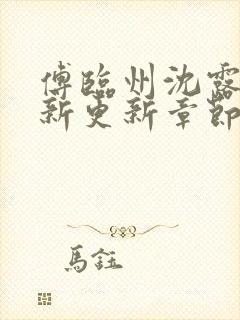 傅臨州沈露
新更新章節
馬鈺